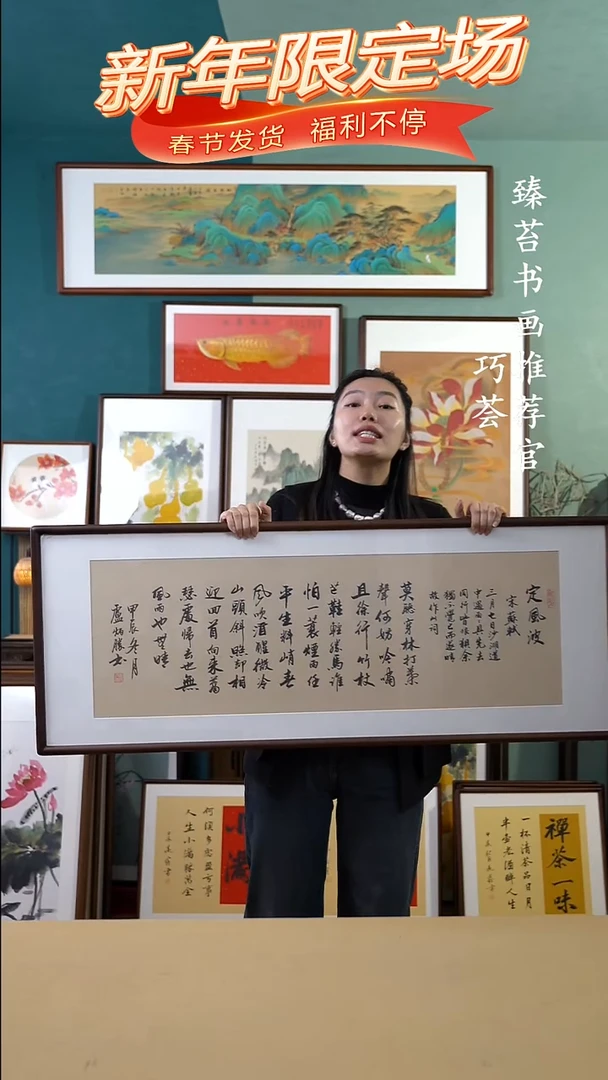 新年限定场
春节发货 福利不停
臻苔书画推荐官
巧荟
定風波
宋蘇軾
三月七日沙湖道
中遇雨雨具先去
同行皆狼狽余
獨不覺已而遂晴
故作此詞
莫聽穿林打葉
聲何妨吟嘯
且徐行竹杖
芒鞋輕勝馬誰
怕一蓑煙雨任
平生料峭春
風吹酒醒微冷
山頭斜照却相
迎回首向來蕭
瑟處歸去也無
風雨也無晴
甲辰冬月
盧炳勝書
小滿
人生小滿勝萬全
禪茶一味
一杯清茶品日月
半壺老酒醉人生